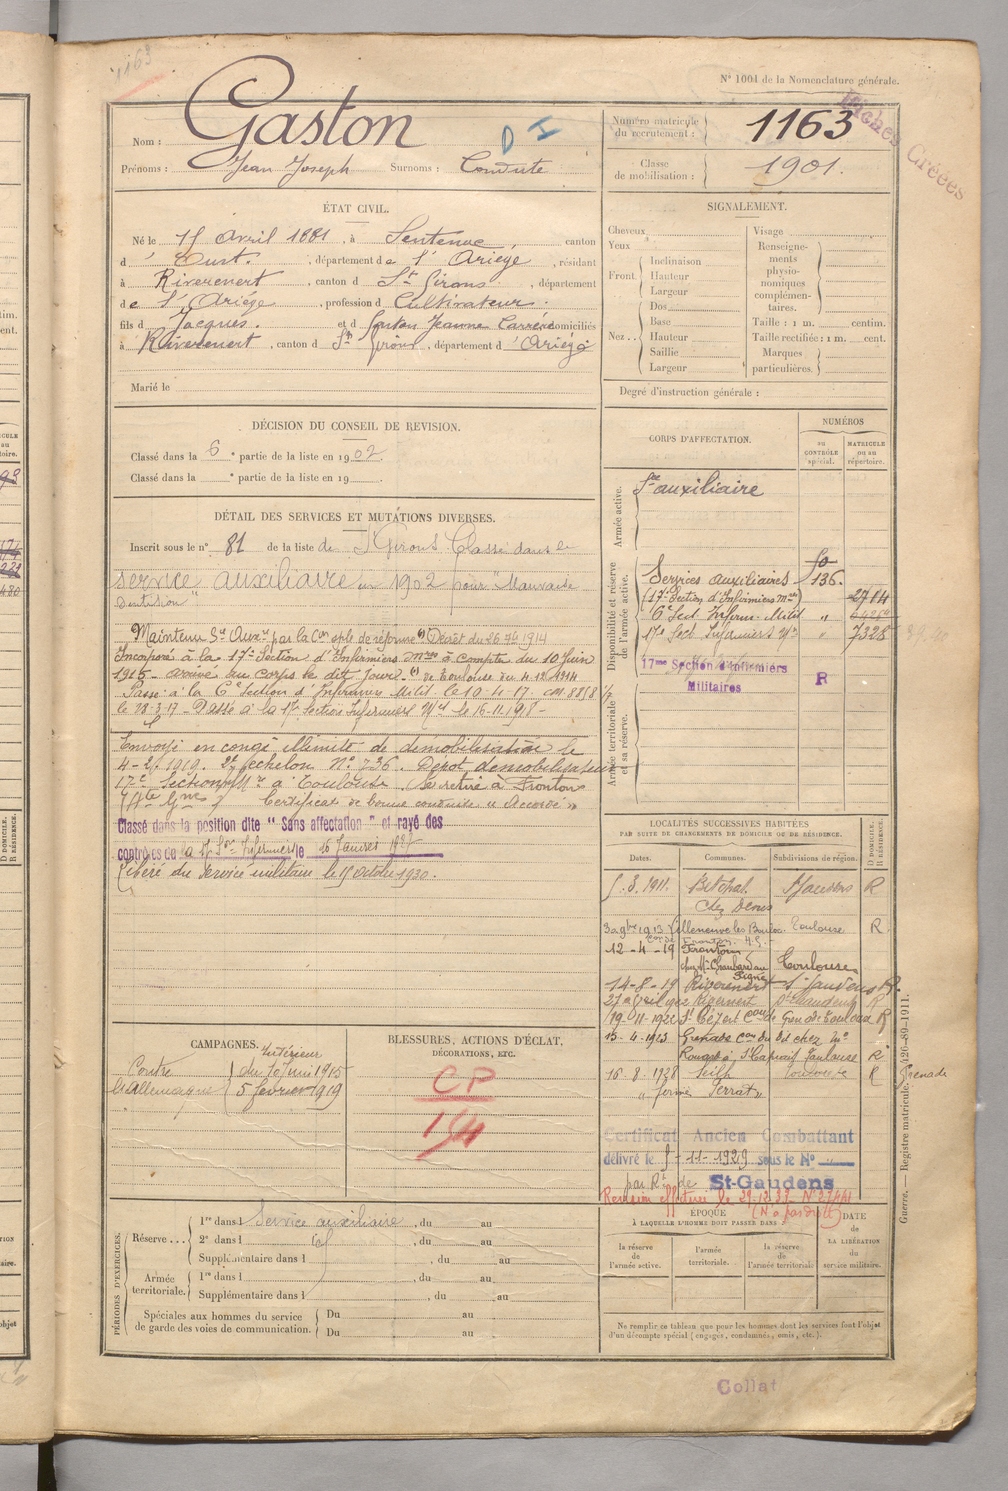 1163
N° 1001 de la Nomenclature générale.
Fiches Créées
Nom : Gaston
D I
Prénoms : Jean Joseph Surnoms : Conduté
Numéro matricule du recrutement : 1163
Classe de mobilisation : 1901.
ÉTAT CIVIL.
Né le 15 Avril 1881, à Sentenac, canton
d'Oust, département de l'Ariège, résidant
à Riverenert, canton de St Girons, département
de l'Ariège, profession de Cultivateur.
fils de Jacques. et de Gaston Jeanne Carrère domiciliés
à Riverenert, canton de St Girons, département d'Ariège
Marié le
SIGNALEMENT.
Cheveux
Yeux
Front Inclinaison
Hauteur
Largeur
Nez Dos
Base
Hauteur
Saillie
Largeur
Visage
Renseignements physionomiques complémentaires.
Taille : 1 m. centim.
Taille rectifiée : 1 m. cent.
Marques particulières.
Degré d'instruction générale :
DÉCISION DU CONSEIL DE REVISION.
Classé dans la 6e partie de la liste en 1902.
Classé dans la e partie de la liste en 19
DÉTAIL DES SERVICES ET MUTATIONS DIVERSES.
Inscrit sous le n° 81 de la liste de St Girons Classé dans le
service auxiliaire en 1902 pour "Mauvaise
Dentition"
Maintenu Sce Auxre par la Con sple de réforme (1) Décret du 26 - 1914
Incorporé à la 17e Section d'Infirmiers Mres à compter du 10 Juin
1915 arrivé au corps le dit jour. (1) de Toulouse du 4.12.1914
Passé à la 6e Section d'Infirmiers Milit. le 10.4.17.
le 28.3.17 - Passé à la 17e Section Infirmiers Mres le 16.11.1918 -
Envoyé en congé illimité de démobilisation le
4-2-1919. 2e échelon N° 736. Dépôt démobilisateur
17e Section à Toulouse. Se retire à Fronton
(Hte Gne) Certificat de bonne conduite "Accordé"
Classé dans la position dite "Sans affectation" et rayé des
contrôles de la 17 Son Infirmiers le 16 Janvier 1927
Libéré du Service militaire le 15 Octobre 1930.
CORPS D'AFFECTATION.
NUMÉROS
au CONTRÔLE spécial.
MATRICULE ou au répertoire.
Armée active.
Sce auxiliaire
Disponibilité et réserve de l'armée active.
Services auxiliaires 136.
(17e Section d'Infirmiers Mres) 2714
6e Sect Infirm. Milit "
17e Sect Infirmiers Mres " 7328
17me Section d'Infirmiers Militaires R
Armée territoriale et sa réserve.
LOCALITÉS SUCCESSIVES HABITÉES
PAR SUITE DE CHANGEMENTS DE DOMICILE OU DE RÉSIDENCE.
Dates. Communes. Subdivisions de région. D DOMICILE. R RÉSIDENCE.
5.3.1911. Betchat St Gaudens R
Chez Denis
1913 Villeneuve les Toulouse R
12-4-19 Fronton Toulouse
14-8-19 Riverenert St Gaudens R.
Rivernert St Gaudens R
19-11-1922 St Cézert Con de Grenade Toulouse R
15-4-1923 Grenade Con du dit chez Mr
St Toulouse R
16.8.1928 Seilh Toulouse R Grenade
" ferme Serrat "
Certificat Ancien Combattant
délivré le 5-11-1929 sous le N° "
par Rt de St-Gaudens
Révision effectuée le 29-12-33
CAMPAGNES.
Intérieur
Contre l'Allemagne du 10 Juin 1915
5 février 1919
BLESSURES, ACTIONS D'ÉCLAT,
DÉCORATIONS, ETC.
CP
PÉRIODES D'EXERCICES.
Réserve... 1re dans l Service auxiliaire, du au
2e dans l id, du au
Supplémentaire dans l, du au
Armée territoriale. 1re dans l, du au
Supplémentaire dans l, du au
Spéciales aux hommes du service de garde des voies de communication. Du au
Du au
ÉPOQUE
À LAQUELLE L'HOMME DOIT PASSER DANS :
la réserve de l'armée active.
l'armée territoriale.
la réserve de l'armée territoriale
DATE de LA LIBÉRATION du service militaire.
Ne remplir ce tableau que pour les hommes dont les services font l'objet
d'un décompte spécial (engagés, condamnés, omis, etc.).
Guerre. — Registre matricule. — 426-89-1911.
Collat